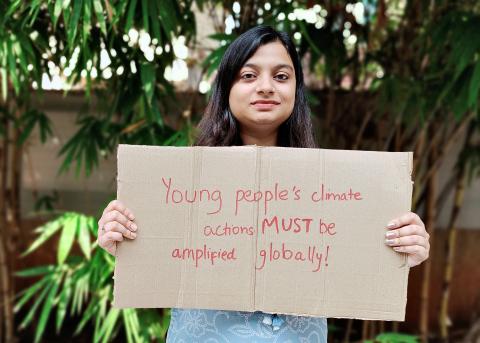 Young people's climate
actions MUST be
amplified globally!